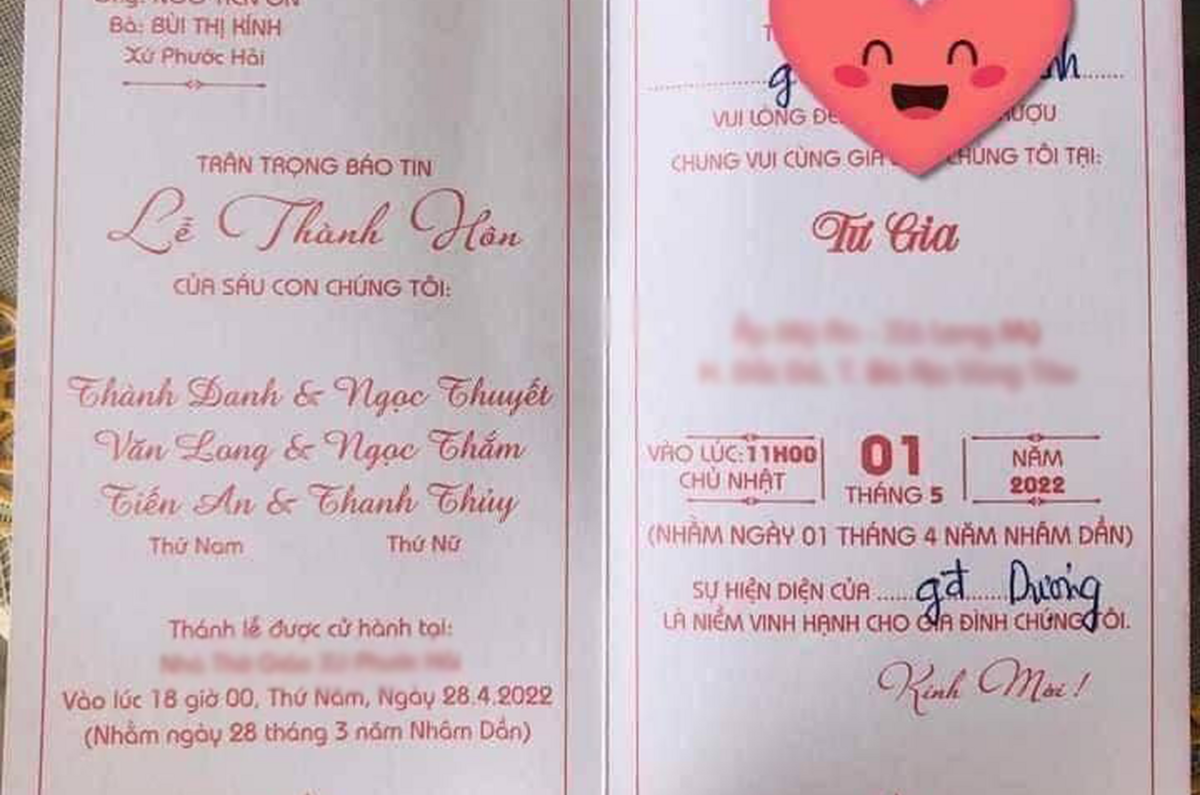 Bà: BÙI THỊ KÍNH
Xứ Phước Hải
TRÂN TRỌNG BÁO TIN
Lễ Thành Hôn
CỦA SÁU CON CHÚNG TÔI:
Thành Danh & Ngọc Thuyết
Văn Long & Ngọc Thắm
Tiến An & Thanh Thủy
Thứ Nam Thứ Nữ
Thánh lễ được cử hành tại:
Vào lúc 18 giờ 00, Thứ Năm, Ngày 28.4.2022
(Nhằm ngày 28 tháng 3 năm Nhâm Dần)
VUI LÒNG
CHUNG VUI CÙNG CHÚNG TÔI TẠI:
Tư Gia
VÀO LÚC: 11H00
CHỦ NHẬT
01
THÁNG 5
NĂM
2022
(NHẰM NGÀY 01 THÁNG 4 NĂM NHÂM DẦN)
SỰ HIỆN DIỆN CỦA ...... gđ ...... Dương
LÀ NIỀM VINH HẠNH CHO GIA ĐÌNH CHÚNG TÔI.
Kính Mời !